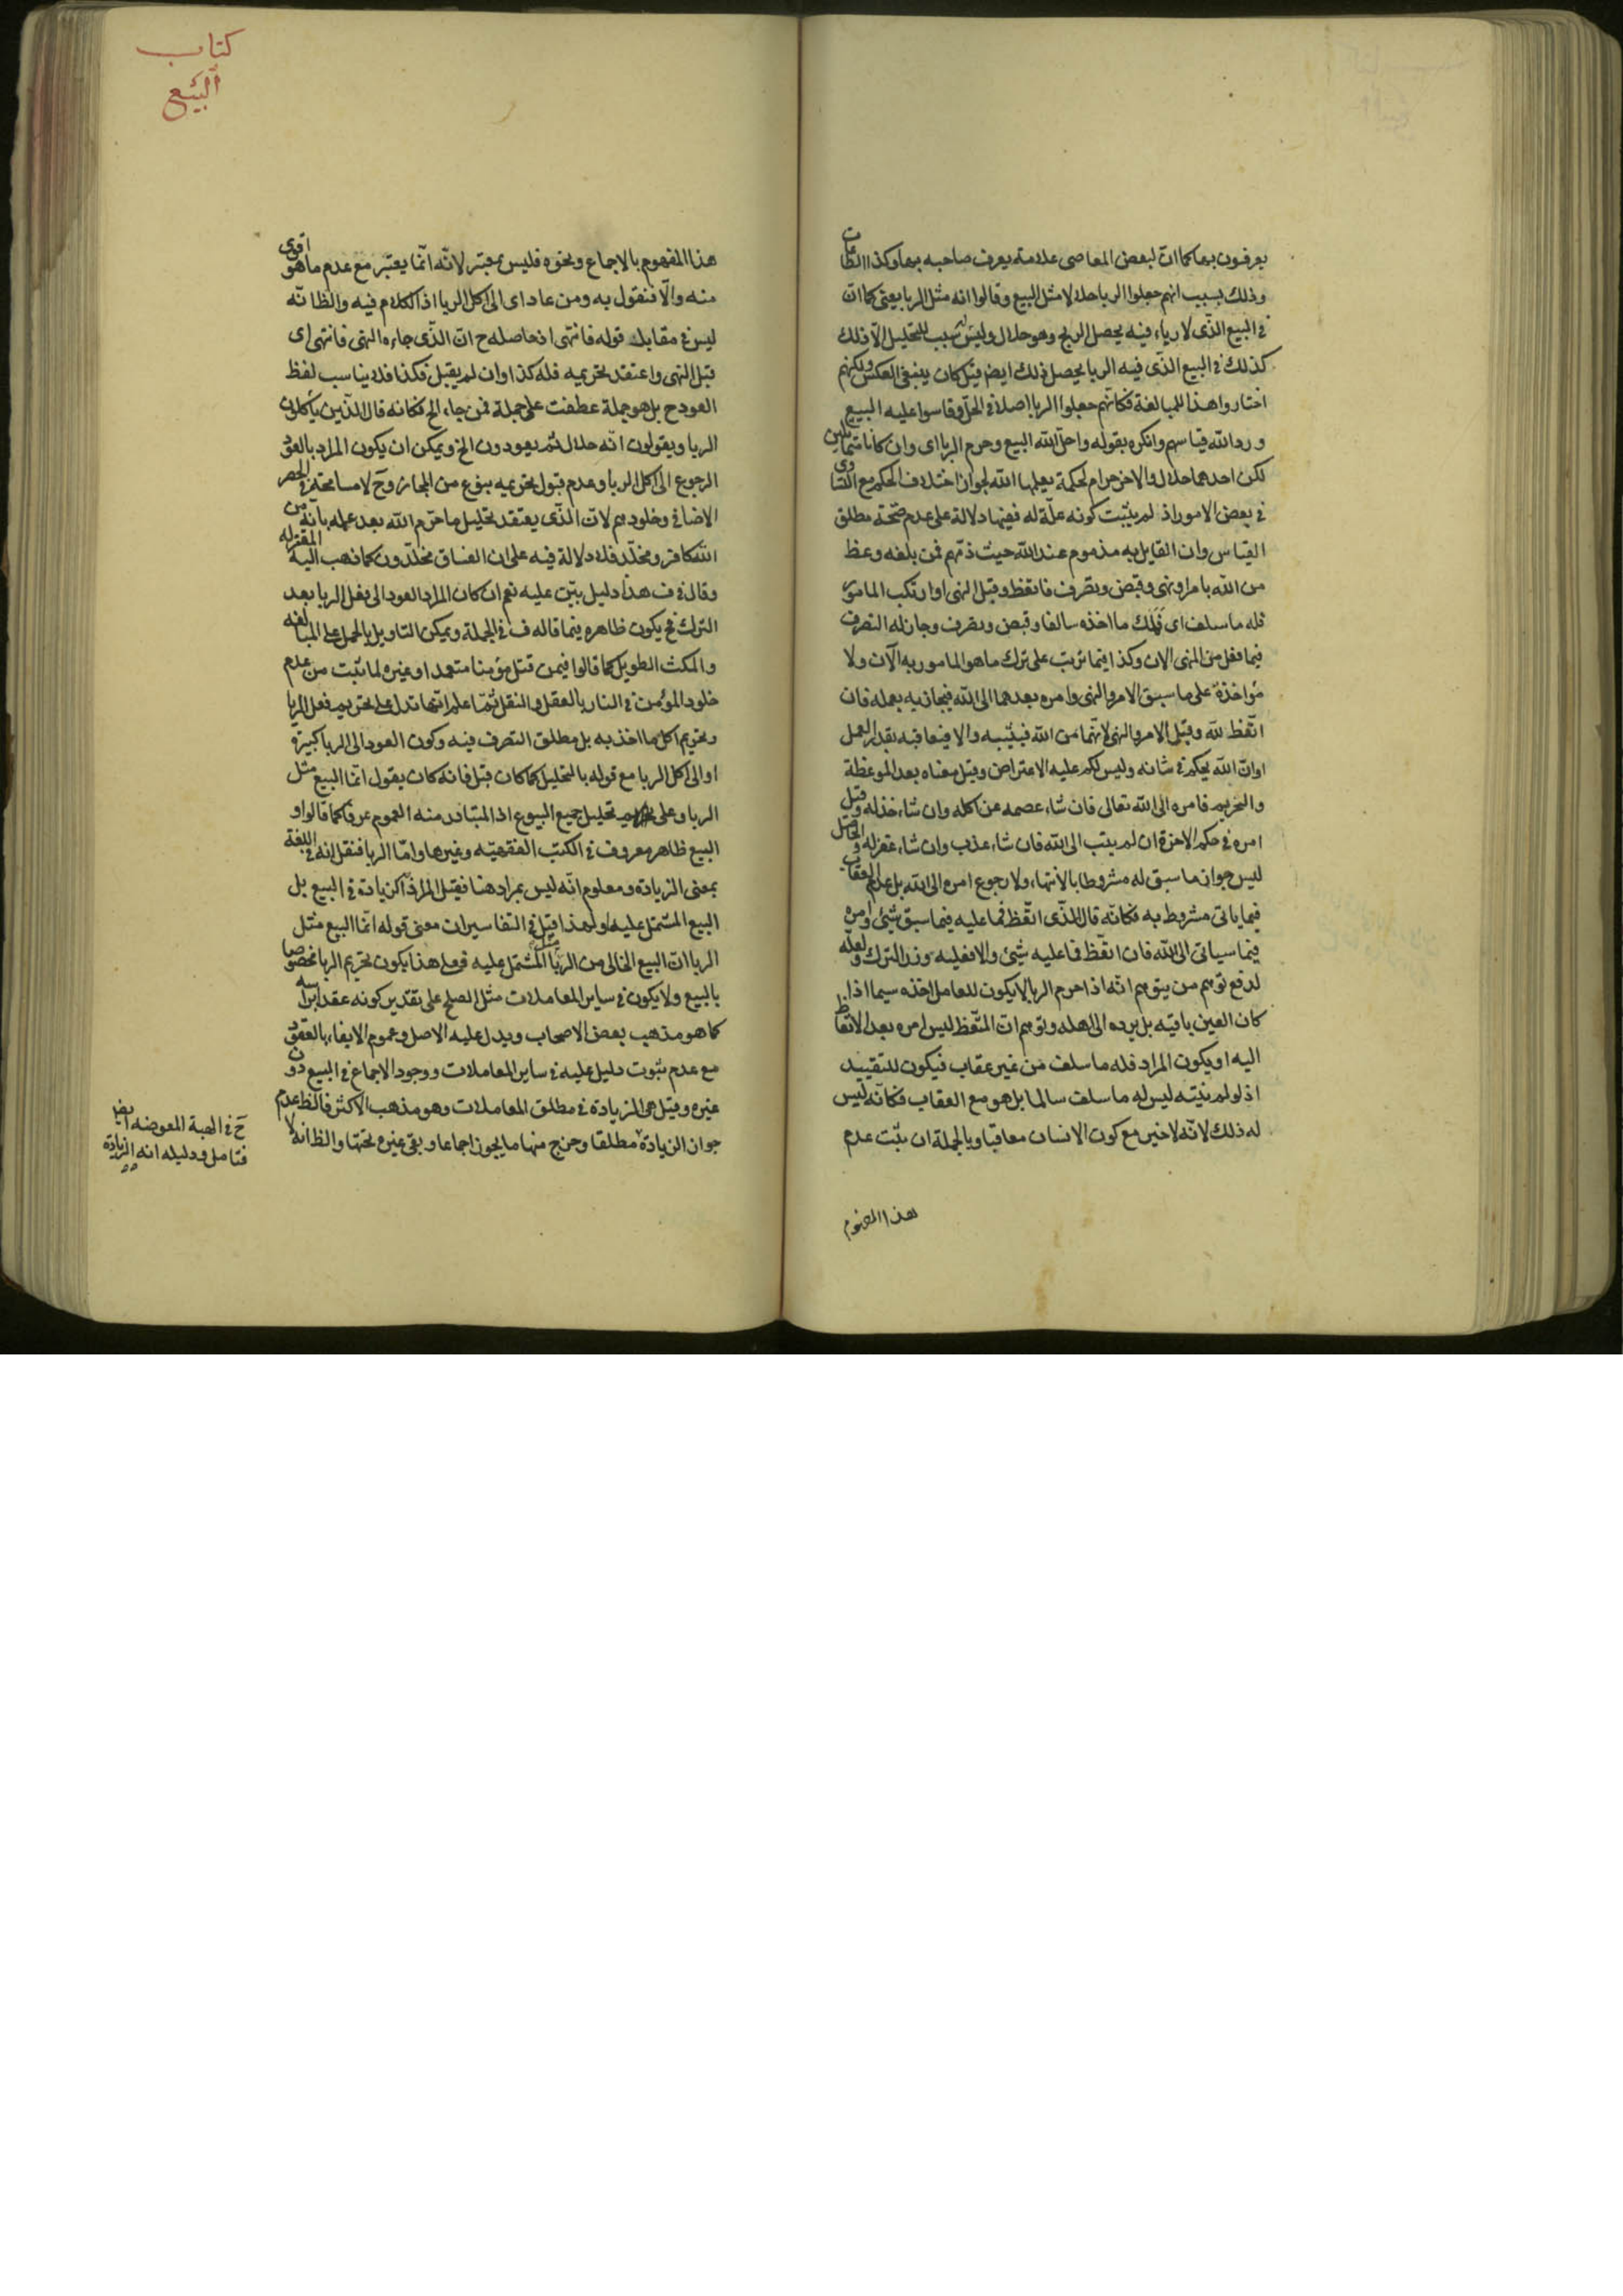 يعرفون بها كما ان لبعض المعاصى علامة يعرف صاحبه بها وكذا الطاعات
وذلك بسبب انهم جعلوا الربا حلالا مثل البيع وقالوا انه مثل الربا يعنى كما ان
فى البيع الذى لا رباء فيه يحصل الربح وهو حلال وليس سبب للتحليل الا ذلك
كذلك فى البيع الذى فيه الربا يحصل ذلك ايض قيل كان ينبغى العكس ولكنهم
اختاروا هذا للمبالغة فكانهم جعلوا الربا اصلا فى الحل وقاسوا عليه البيع
ورد الله قياسهم وانكره بقوله واحل الله البيع وحرم الربا اى وان كانا متماثلين
لكن احدهما حلال والاخر حرام لحكمة يعلمها الله لجواز اختلاف الحكم مع التساوى
فى بعض الامور اذ لم يثبت كونه علة له ففيها دلالة على عدم صحة مطلق
القياس وان القايل به مذموم عند الله حيث ذمهم فمن بلغه وعظ
من الله بامر او نهى وقبض وتصرف فاتعظ وقبل النهى او ارتكب المامور
فله ما سلف اى فملك ما اخذه سالفا وقبض وتصرف وجاز له التصرف
فيما فعل من المنهى الان وكذا فيما ترتب على ترك ما هو المامور به الآن ولا
مؤاخذة على ما سبق الامر والنهى وامره بعدهما الى الله فيجازيه بعمله فان
اتعظ لله وقبل الامر والنهى لانهما من الله فيثيبه والا فيعاقبه بقدر العمل
او ان الله يحكم فى شانه وليس لكم عليه الاعتراض وقيل معناه بعد الموعظة
والتحريم فامره الى الله تعالى فان شاء عصمه عن اكله وان شاء خذله وقيل
امره فى حكم الاخرة ان لم يتب الى الله فان شاء عذب وان شاء غفر له والحاصل
ليس جواز ما سبق له مشروطا بالانتهاء ولا رجوع امره الى الله بل عدم العقاب
فيما ياتى مشروط به فكانه قال الذى اتعظ فما عليه فيما سبق شئ وامره
فيما سياتى الى الله فان اتعظ فما عليه شئ والا فعليه وزر الترك ولعله
لدفع توهم من يتوهم انه اذا حرم الربا لا يكون للعامل اخذه سيما اذا
كان العين باقية بل يرده الى اهله وتوهم ان المتعظ ليس امره بعد الاتعاظ
اليه او يكون المراد فله ما سلف من غير عقاب فيكون للتقييد
اذ لو لم ينته ليس له ما سلف سالما بل هو مع العقاب فكانه ليس
له ذلك لانه لا خير مع كون الانسان معاقبا وبالجملة ان يثبت عدم
هذا المفهوم
كتاب
البيع
هذا المفهوم بالاجماع ونحوه فليس بمعتبر لانه انما يعتبر مع عدم ما هو اقوى
منه والا فنقول به ومن عاد اى الى اكل الربا اذ الكلام فيه والظ انه
ليس فى مقابل قوله فانتهى اذ حاصله ح ان الذى جاءه النهى فانتهى اى
قبل النهى واعتقد تحريمه فله كذا وان لم يقبل فكذا فلا يناسب لفظ
العود ح بل هو جملة عطفت على جملة فمن جاء الخ فكانه قال الذين ياكلون
الربا ويقولون انه حلال ثم يعودون الخ ويمكن ان يكون المراد بالعود
الرجوع الى اكل الربا وعدم قبول تحريمه بنوع من المجاز وح لا مسامحة فى الحصر
الاضافى وخلودهم لان الذى يعتقد تحليل ما حرم الله بعد عمله بانه من
الله كافر ومخلد فلا دلالة فيه على ان الفساق مخلدون كما ذهب اليه المعتزله
وقال فى ف هذا دليل بين عليه نعم ان كان المراد العود الى فعل الربا بعد
الترك فح يكون ظاهره فيما قاله ف فى الجملة ويمكن التاويل بالحمل على المبالغه
والمكث الطويل كما قالوا فيمن قتل مؤمنا متعمدا وغيره لما ثبت من عدم
خلود المؤمن فى النار بالعقل والنقل ثم اعلم انها تدل على تحريم فعل الربا
وتحريم اكل ما اخذ به بل مطلق التصرف فيه وكون العود الى الربا كبيرة
او الى اكل الربا مع قوله بالتحليل كما كان قبل فانه كان يقول انما البيع مثل
الربا وعلى تحليل جميع البيوع اذ المتبادر منه العموم عرفا كما قالوا و
البيع ظاهر معروف فى الكتب الفقهيه وغيرها واما الربا فنقل انه فى اللغة
بمعنى الزيادة ومعلوم انه ليس بمراد هنا فقيل المراد الزيادة فى البيع بل
البيع المشتمل عليها ولهذا قيل فى التفاسير ان معنى قوله انما البيع مثل
الربا ان البيع الخالى من الربا مثل المشتمل عليه فعلى هذا يكون تحريم الربا مخصوصا
بالبيع ولا يكون فى ساير المعاملات مثل الصلح على تقدير كونه عقدا براسه
كما هو مذهب بعض الاصحاب ويدل عليه الاصل وعموم الايفاء بالعقود
مع عدم ثبوت دليل عليه فى ساير المعاملات ووجود الاجماع فى البيع دون
غيره وقيل هى الزيادة فى مطلق المعاملات وهو مذهب الاكثر فالظ عدم
جواز الزيادة مطلقا وخرج منها ما يجوز اجماعا وبقى غيره تحتها والظ انه لا
ح فى الهبة المعوضه ايض
فتامل ودليله انه الزيادة